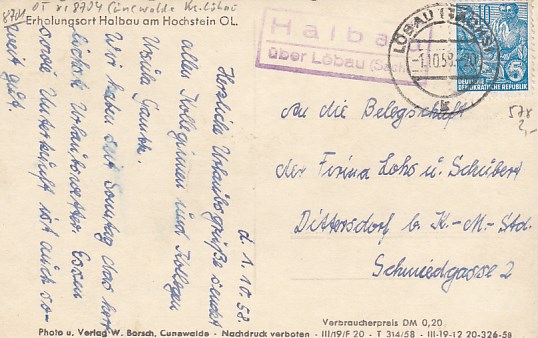 8701 OT v. 8704 Cunewalde Kr. Löbau
Erholungsort Halbau am Hochstein OL.
Halbau
über Löbau (Sachs)
LÖBAU (SACHS)
-1.10.58
k
DEUTSCHE
DEMOKRATISCHE REPUBLIK
5
d. 1. 10. 58.
Herzliche Urlaubsgrüße sendet
allen Kolleginnen und Kollegen
Ursula
Wir haben seit Sonntag das herr-
lichste Urlaubswetter. Essen
sowie Unterkunft ist auch so-
weit gut.
An die Belegschaft
der Firma Lohs u. Schubert
Dittersdorf b. K.-M.-Std.
Schmiedgasse 2
2,-
Verbraucherpreis DM 0,20
Photo u. Verlag W. Borsch, Cunewalde - Nachdruck verboten - III/19/F 20 - T 314/58 - III-19-12 20-326-58